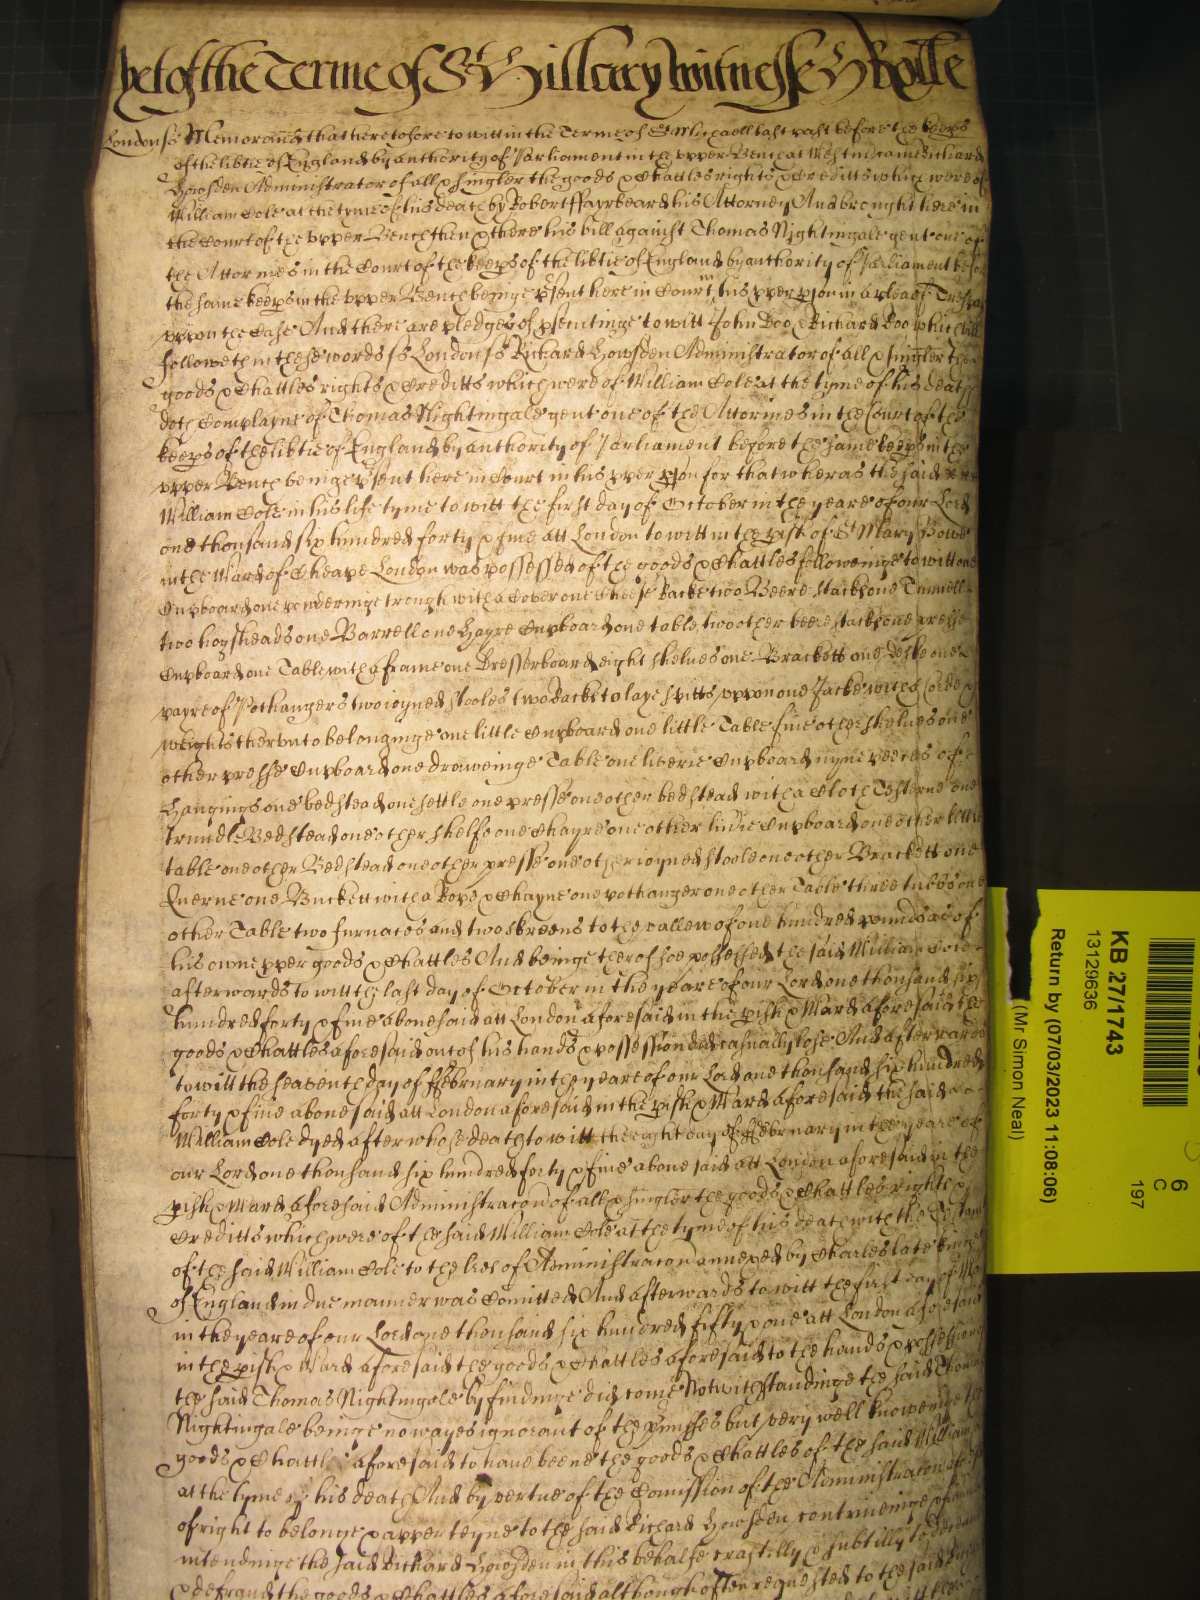 yet of the Terme of St Hillary Witnesse H Rolle
London ss Memorand that heretofore to witt in the Terme of St Michaell last past before the keeps
of the libtie of England by authority of Parliament in the upper Bench at Westm came Richard
Howsden Administrator of all & singler the goods & Chattles rights & Creditts which were of
William Cole at the tyme of his death by Robert ffayrbeard his Attorney And brought here in
the Court of the upper Bench then & there his bill against Thomas Nightingale gent one of
the Attornies in the Court of the keeps of the libtie of England by authority of Parliament before
the same keeps in the upper Bench beinge psent here in Court in his pper pson in a plea of Trespas
uppon the Case And there are pledges of psecutinge to witt John Doo & Richard Roo which bill
followeth in these words ss London ss Richard Howsden Administrator of all & singler the
goods & Chattles rights & Creditts which were of William Cole at the tyme of his death
doth Complayne of Thomas Nightingale gent one of the Attornies in the Court of the
keeps of the libtie of England by authority of Parliament before the same keeps in the
upper Bench beinge psent here in Court in his pper pson for that wheras the said
William Cole in his life tyme to witt the first day of October in the yeare of our Lord
one thousand six hundred forty & five att London to witt in the pish of St Mary Bowe
in the Ward of Cheape London was possessed of the goods & Chattles followeinge to witt one
Cupboard one powderinge trough with a Cover one Cheese Racke two Beere stacks one Tunnell
two hogsheads one Barrell one Hayre Cupboard one table two other beere stacks one presse
Cupboard one Table with a frame one Dresserboard eight shelves one Brackett one Deske one
payre of Pothangers two ioyned stooles two Racks to laye spitts uppon one Jacke with Corde &
weights therunto belonginge one little Cupboard one little Table five other shelves one
other presse Cupboard one draweinge Table one liverie Cupboard nyne peeces of
Hangings one bedstead one settle one presse one other bedstead with a Cloth Testerne one
trundle Bedstead one other shelfe one Chayre one other livie Cupboard one other little
table one other Bedstead one other presse one other ioyned stoole one other Brackett one
Querne one Buckett with a Rope & Chayne one pothanger one other Table three tubbs one
other Table two furnaces and two skreens to the vallew of one hundred pounds as of
his owne pper goods & Chattles And beinge therof soe possessed the said William Cole
afterwards to witt the last day of October in the yeare of our Lord one thousand six
hundred forty & five abovesaid att London aforesaid in the pish & Ward aforesaid the
goods & Chattles aforesaid out of his hands & possession did casually lose And afterwards
to witt the seaventh day of ffebruary in the yeare of our Lord one thousand six hundred
forty & five abovesaid att London aforesaid in the pish & Ward aforesaid the said
William Cole dyed after whose death to witt the eight day of ffebruary in the yeare of
our Lord one thousand six hundred forty & five abovesaid att London aforesaid in the
pish & Ward aforesaid Administracon of all & singler the goods & Chattles rights &
Creditts which were of the said William Cole at the tyme of his death with the Testamt
of the said William Cole to the lres of Administracon annexed by Charles late kinge
of England in due manner was Comitted And afterwards to witt the first day of May
in the yeare of our Lord one thousand six hundred fifty & one att London aforesaid
in the pish & Ward aforesaid the goods & Chattles aforesaid to the hands & possession of
the said Thomas Nightingale by findinge did come Notwithstandinge the said Thomas
Nightingale beinge noe wayes ignorant of the pmisses but very well knoweinge the
goods & Chattles aforesaid to have beene the goods & Chattles of the said William
at the tyme of his death And by vertue of the Comission of the Administracon aforesaid
of right to belonge & apperteyne to the said Richard Howsden contriveinge &
intendinge the said Richard Howsden in this behalfe craftily & subtilly to deceave
& defraud the goods & Chattles aforesaid although often requested to the said
KB 27/1743
13129636
Return by (07/03/2023 11:08:06)
(Mr Simon Neal)
6
C
197